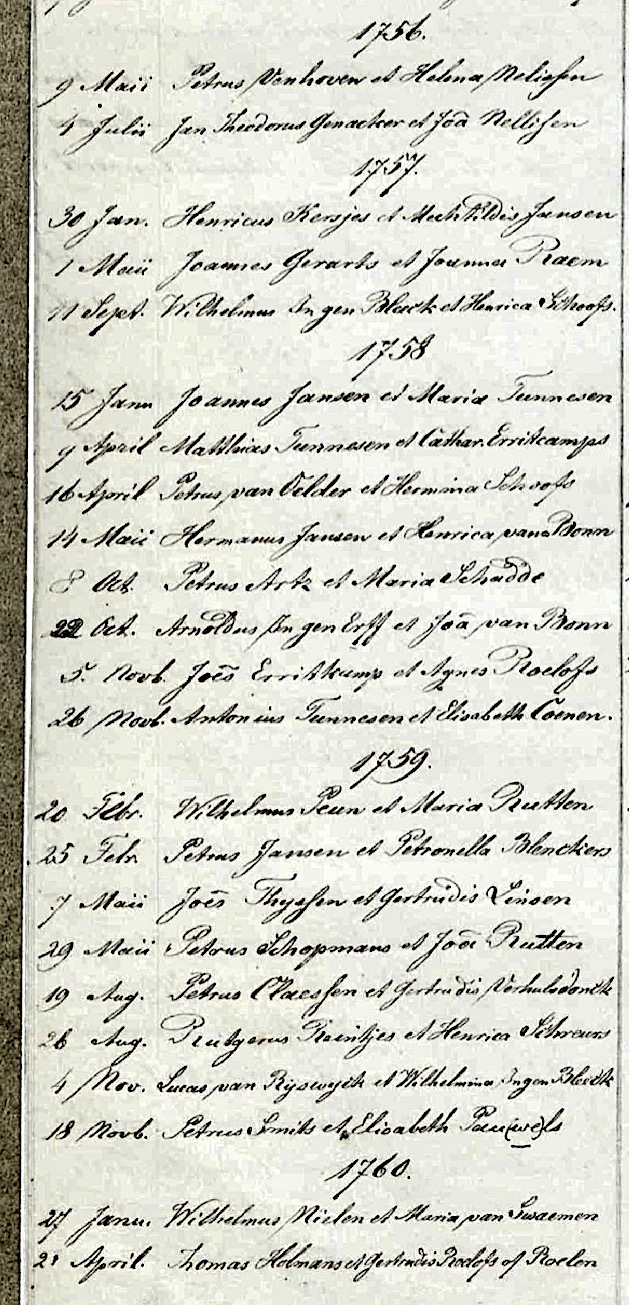 1756.
9 Maii Petrus Venhoven et Helena Neliessen
4 Julii Jan Theodorus Genacker et Joã Nellissen
1757.
30 Jan. Henricus Kersjes et Mechtildis Jansen
1 Maii Joannes Gerarts et Joanna Raem
11 Sept. Wilhelmus Ingen Bleek et Henrica Schoofs.
1758
15 Janu Joannes Jansen et Maria Tunnesen
9 April Matthias Tunnesen et Cathar. Erritcamps
16 April Petrus van Oelder et Hermina Schoofs
14 Maii Hermanus Jansen et Henrica van Bonn
8 Oct. Petrus Artz et Maria Schadde
22 Oct. Arnoldus Ingen Erff et Joã van Bonn
5. Novb. Joẽs Erritkamp et Agnes Roelofs
26 Novb. Antonius Tunnesen et Elisabeth Coenen.
1759.
20 Febr. Wilhelmus Peun et Maria Rutten
25 Febr. Petrus Jansen et Petronella Blenckers
7 Maii Joẽs Thyssen et Gertrudis Linsen
29 Maii Petrus Schopmans et Joã Rutten
19 Aug. Petrus Claessen et Gertrudis Verhulsdonck
26 Aug. Rutgerus Reintjes et Henrica Schreurs
4 Nov. Lucas van Ryswyck et Wilhelmina Ingen Bleeck
18 Novb. Petrus Smits et Elisabeth Pau(we)ls
1760.
27 Janu. Wilhelmus Nielen et Maria van
April. Thomas Holmans et Gertrudis Roelofs of Roelen